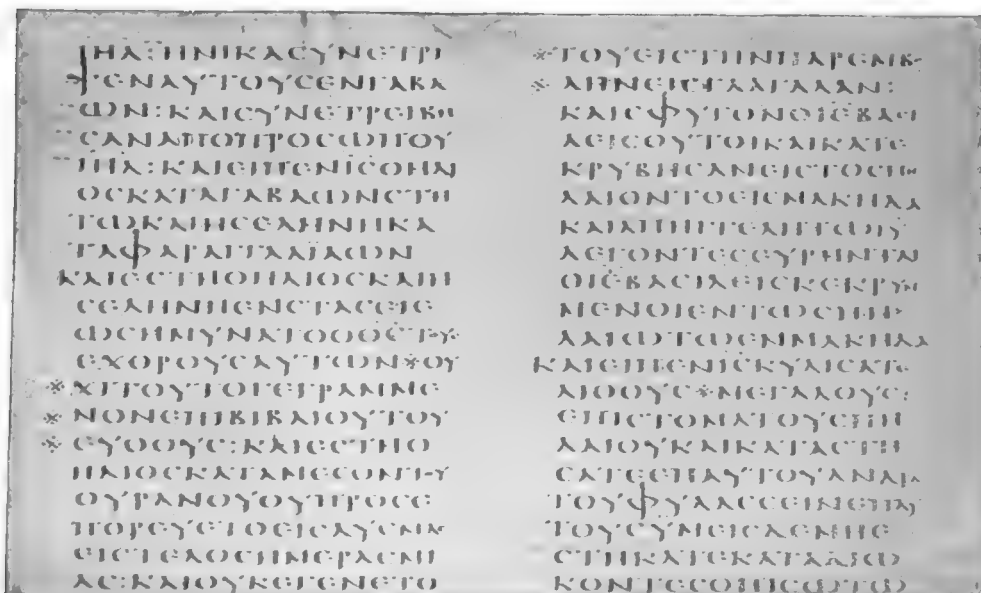 ΙΗΛ:ΗΝΙΚΑϹΥΝΕΤΡΙ
ΨΕΝΑΥΤΟΥϹΕΝΓΑΒΑ
ΩΝ:ΚΑΙϹΥΝΕΤΡΕΙΒΗ
ϹΑΝΑΠΟΠΡΟϹΩΠΟΥ
ΙΗΛ:ΚΑΙΕΙΠΕΝΙϹΟΗΛΙ
ΟϹΚΑΤΑΓΑΒΑΩΝϹΤΗ
ΤΩΚΑΙΗϹΕΛΗΝΗΚΑ
ΤΑΦΑΡΑΓΓΑΑΙΛΩΝ
ΚΑΙΕϹΤΗΟΗΛΙΟϹΚΑΙΗ
ϹΕΛΗΝΗΕΝϹΤΑϹΕΙΕ
ΩϹΗΜΥΝΑΤΟΟΘϹΤΟΥ
ΕΧΘΡΟΥϹΑΥΤΩΝ※ΟΥ
※ΧΙΤΟΥΤΟΓΕΓΡΑΜΜΕ
※ΝΟΝΕΠΙΒΙΒΛΙΟΥΤΟΥ
※ΕΥΘΟΥϹ:ΚΑΙΕϹΤΗΟ
ΗΛΙΟϹΚΑΤΑΜΕϹΟΝΤΟΥ
ΟΥΡΑΝΟΥΟΥΠΡΟϹΕ
ΠΟΡΕΥΕΤΟΕΙϹΔΥϹΜΑ
ΕΙϹΤΕΛΟϹΗΜΕΡΑϹΜΙ
ΑϹ:ΚΑΙΟΥΚΕΓΕΝΕΤΟ
※ΤΟΥΕΙϹΤΗΝΠΑΡΕΜΒΟ
※ΛΗΝΕΙϹΓΑΛΓΑΛΑΝ:
ΚΑΙΕΦΥΓΟΝΟΙΕΒΑϹΙ
ΛΕΙϹΟΥΤΟΙΚΑΙΚΑΤΕ
ΚΡΥΒΗϹΑΝΕΙϹΤΟϹΠΗ
ΛΑΙΟΝΤΟΕΙϹΜΑΚΗΔΑ
ΚΑΙΑΠΗΓΓΕΛΗΤΩΙΥ
ΛΕΓΟΝΤΕϹΕΥΡΗΝΤΑΙ
ΟΙΕΒΑϹΙΛΕΙϹΚΕΚΡΥΜ
ΜΕΝΟΙΕΝΤΩϹΠΗ
ΛΑΙΩΤΩΕΝΜΑΚΗΔΑ
ΚΑΙΕΙΠΕΝΙϹΚΥΛΙϹΑΤΕ
ΛΙΘΟΥϹ※ΜΕΓΑΛΟΥϹ:
ΕΠΙϹΤΟΜΑΤΟΥϹΠΗ
ΛΑΙΟΥΚΑΙΚΑΤΑϹΤΗ
ϹΑΤΕΕΠΑΥΤΟΥΑΝΔΡΑ
ΤΟΥΦΥΛΑϹϹΕΙΝΕΠΑΥ
ΤΟΥϹΥΜΕΙϹΔΕΜΗΕ
ϹΤΗΚΑΤΕΚΑΤΑΔΙΩ
ΚΟΝΤΕϹΟΠΙϹΩΤΩ